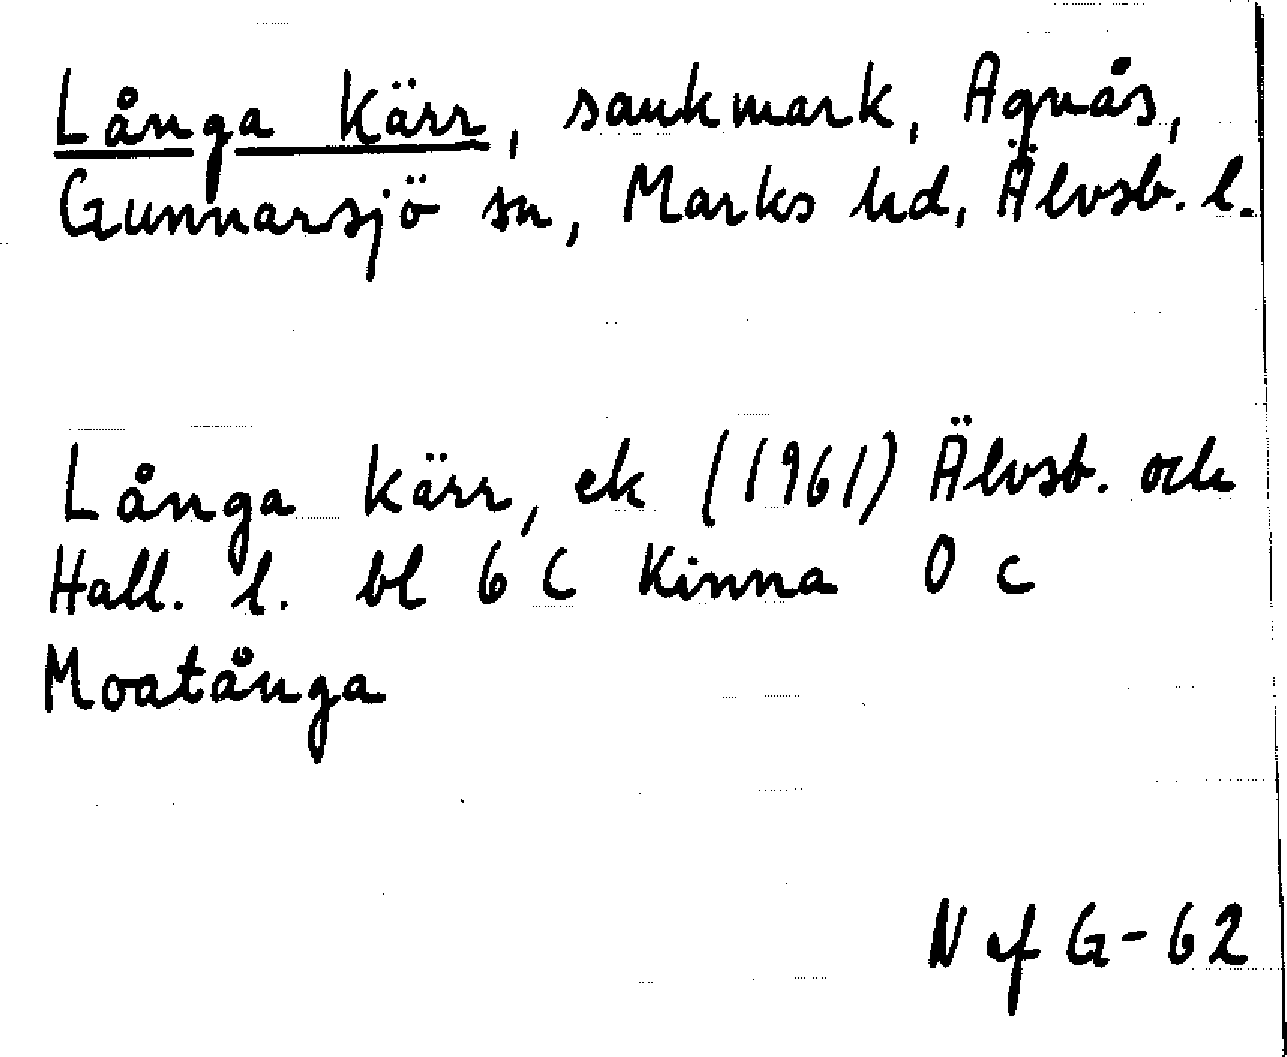 Långa Kärr, sankmark, Agnås,
Gunnarsjö sn, Marks hd, Älvsb. l.
Långa kärr, ek (1961) Älvsb. och
Hall. l. bl 6 C Kinna 0 c
Moatånga
N ef G-62